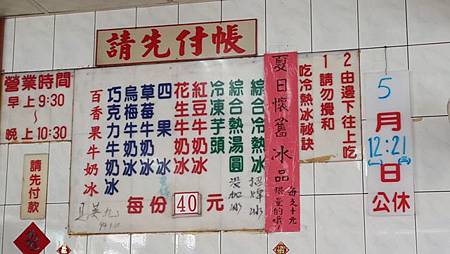 請先付帳
營業時間
早上9:30
～
晚上10:30
請先付款
綜合冷熱冰
綜合熱湯圓
冷凍芋頭
紅豆牛奶冰
花生牛奶冰
四果冰
草莓牛奶冰
烏梅牛奶冰
巧克力牛奶冰
百香果牛奶冰
每份40元
夏日懷舊冰品
每支十元
吃冷熱冰祕訣
1請勿攪和
2由邊下往上吃
5月12.21日公休